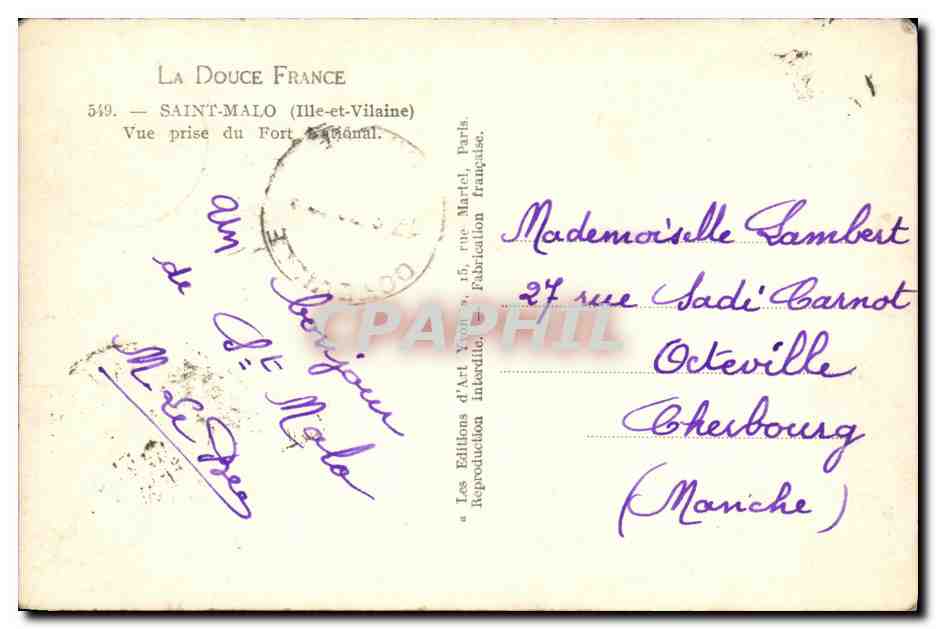 LA DOUCE FRANCE
549. — SAINT-MALO (Ille-et-Vilaine)
Vue prise du Fort National.
un bonjour
de St Malo
M Le
« Les Editions d'Art Yvon », 15, rue Martel, Paris.
Reproduction interdite. — Fabrication française.
Mademoiselle Lambert
27 rue Sadi Carnot
Octeville
Cherbourg
(Manche)
CPAPHIL